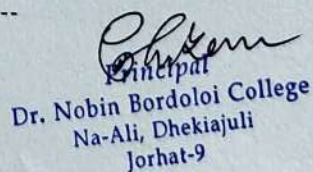 --
Principal
Dr. Nobin Bordoloi College
Na-Ali, Dhekiajuli
Jorhat-9